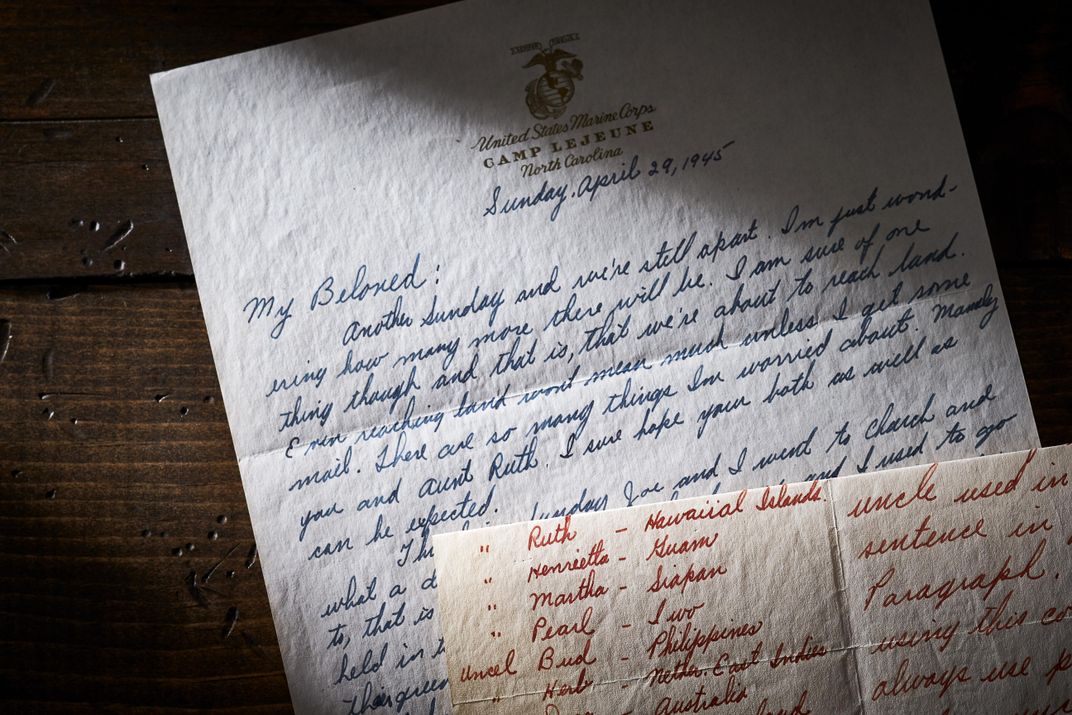 United States Marine Corps
CAMP LEJEUNE
North Carolina
Sunday, April 29, 1945
My Beloved:
Another Sunday and we're still apart. I'm just wond-
ering how many more there will be. I am sure of one
thing though and that is, that we're about to reach land.
Even reaching land wont mean much unless I get some
mail. There are so many things Im worried about. Mainly
you and aunt Ruth. I sure hope your both as well as
can be expected.
Sunday Joe and I went to church and
and I used to go
what a d
to, that is
held in t
" Ruth - Hawaiial Islands
" Henrietta - Guam
" Martha - Siapan
" Pearl - Iwo
Uncel Bud - Philippines
" Herb - Nether. East Indies
- Australia
uncle used in
sentence in
Paragraph.
using this co
always use p